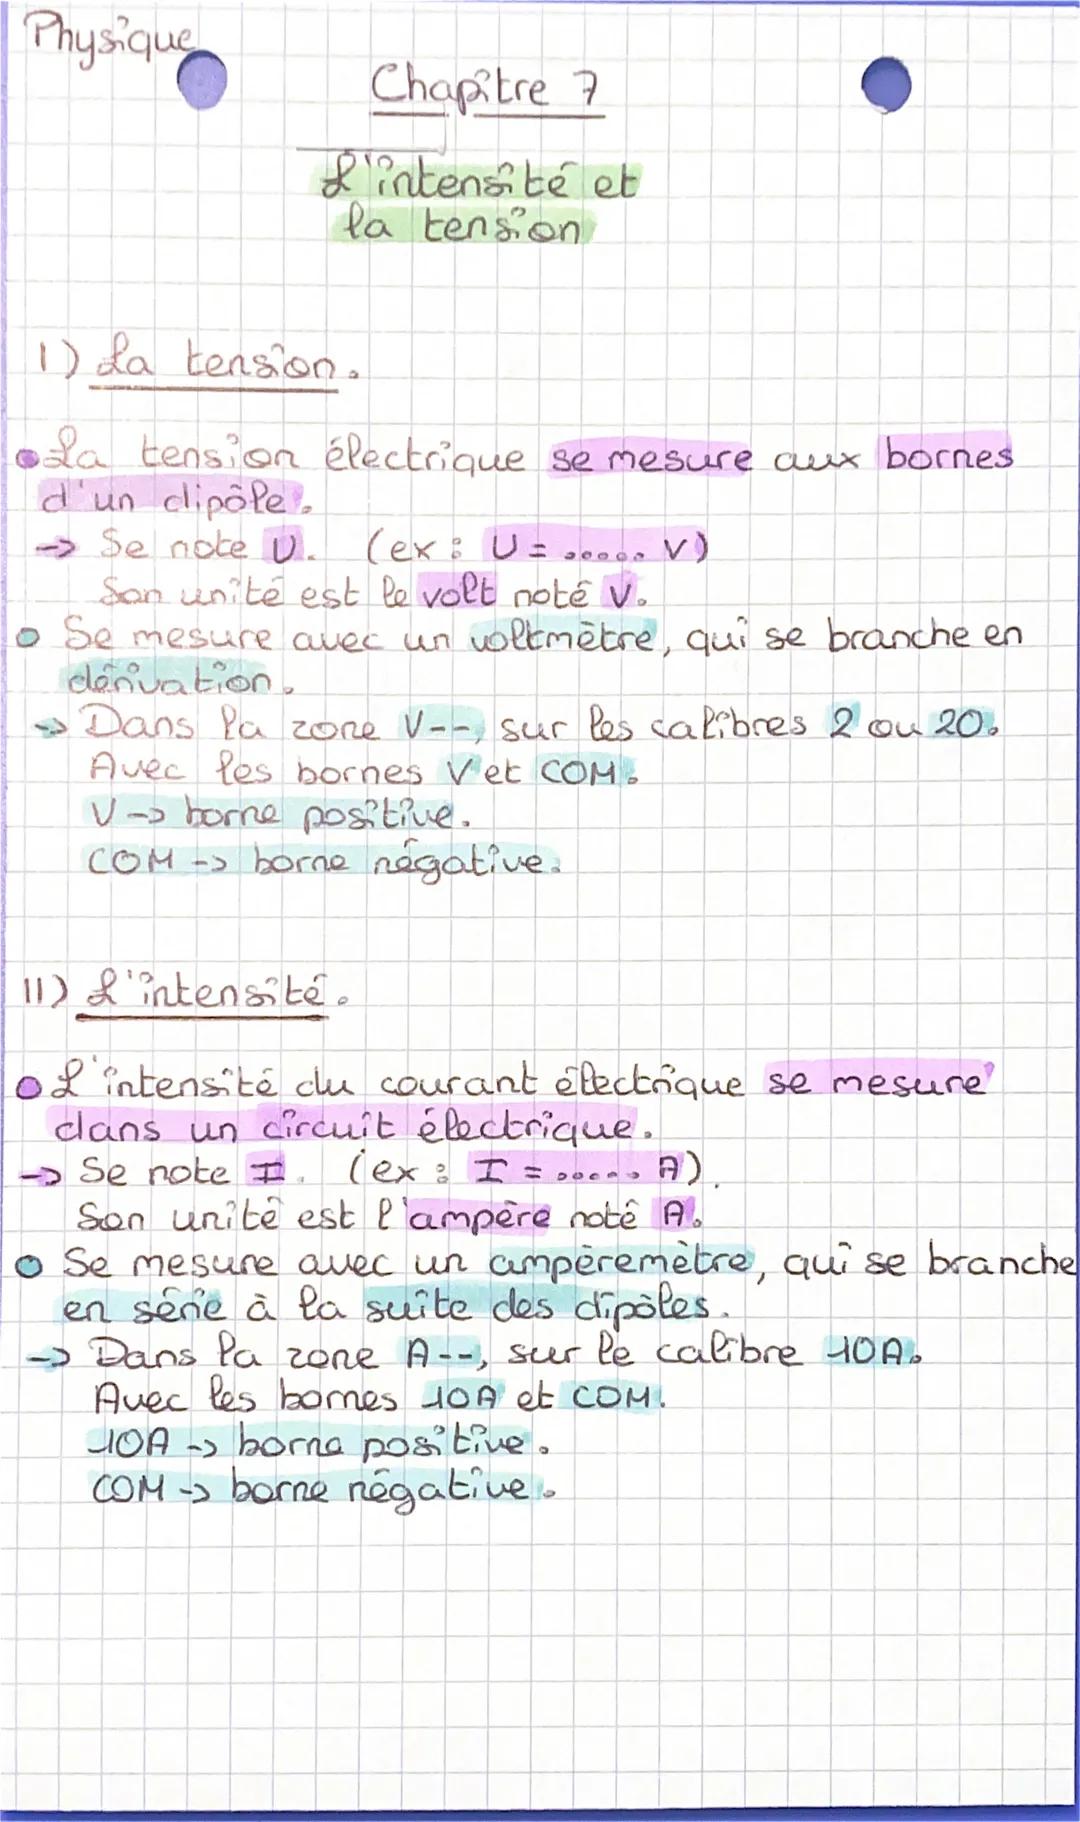 Physique
Chapître 7
L'intensité et
la tension
I) La tension.
La tension électrique se mesure aux bornes
d'un dipôle.
-> Se note U. (ex : U = ..... V)
Son unité est le volt noté V.
Se mesure avec un voltmètre, qui se branche en
dérivation.
-> Dans la zone V--, sur les calibres 2 ou 20.
Avec les bornes V et COM.
V -> borne positive.
COM -> borne négative.
II) L'intensité.
L'intensité du courant électrique se mesure
dans un circuit électrique.
-> Se note I. (ex : I = ..... A).
Son unité est l'ampère noté A.
Se mesure avec un ampèremètre, qui se branche
en série à la suite des dipôles.
-> Dans la zone A--, sur le calibre 10A.
Avec les bornes 10A et COM.
10A -> borne positive.
COM -> borne négative.